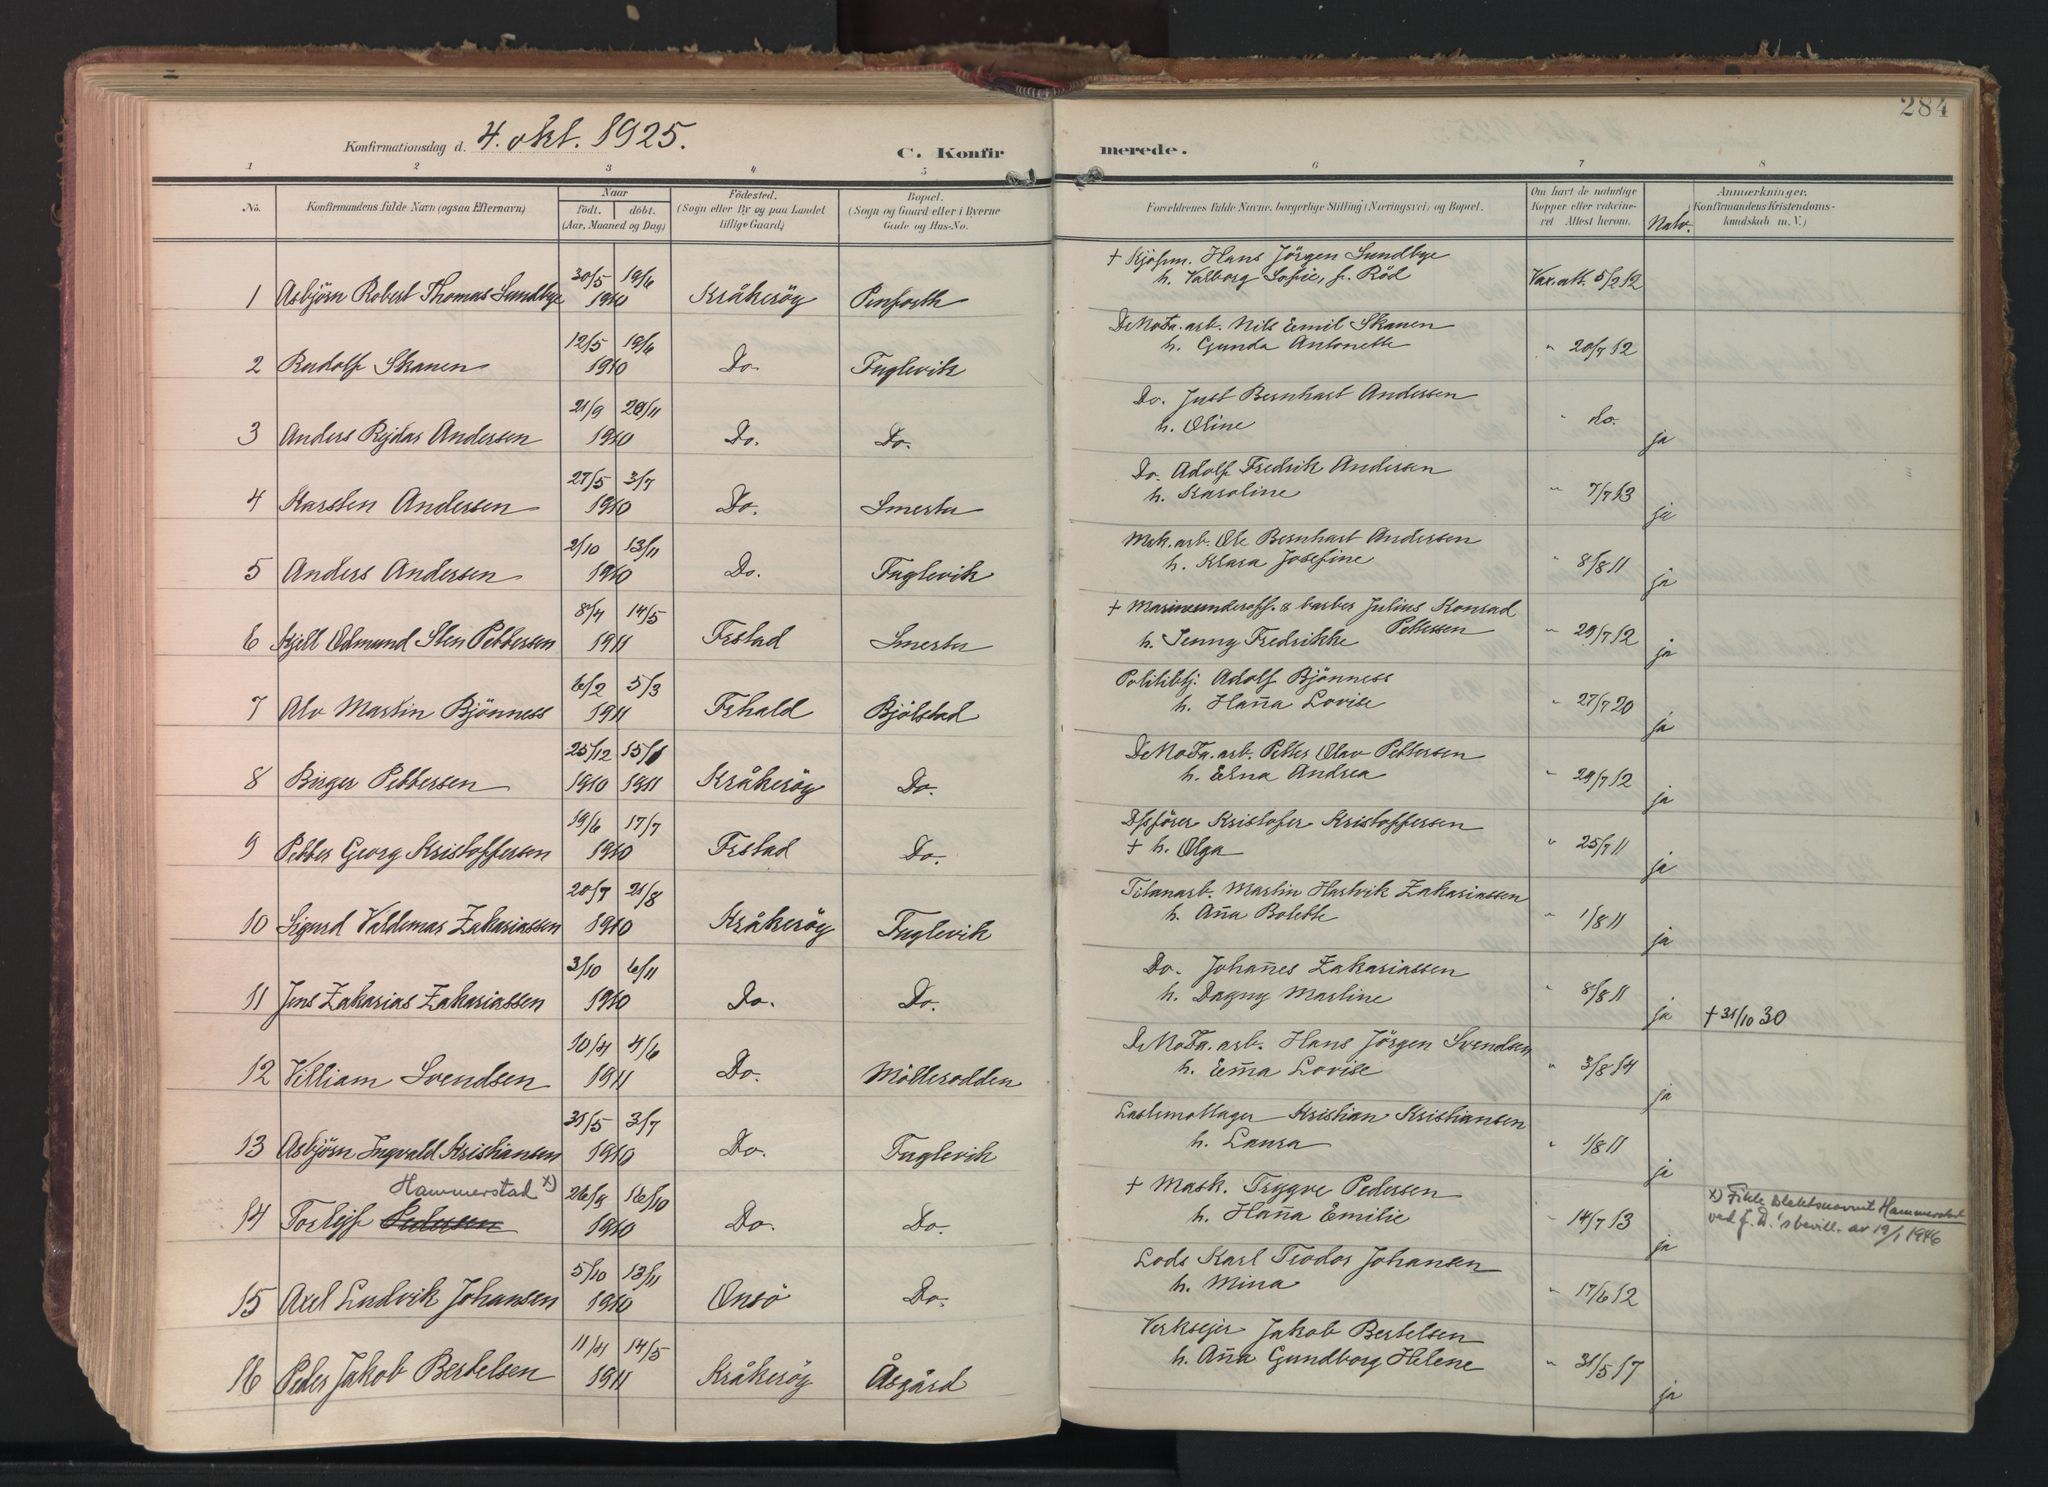 284
Konfirmationsdag d. 4. okt. 1925.
C. Konfirmerede.
1 2 3 4 5 6 7 8
No. Konfirmandens fulde Navn (ogsaa Efternavn) Naar födt. döbt. (Aar, Maaned og Dag) Födested. (Sogn eller By og paa Landet tillige Gaard) Bopæl. (Sogn og Gaard eller i Byerne Gade og Hus-No. Forældrenes fulde Navne, borgerlige Stilling (Næringsvei) og Bopæl. Om havt de naturlige Kopper eller vakcineret Attest herom. Natv. Anmærkninger. Konfirmandens Kristendomskundskab m. V.)
† Kjøpm. Hans Jörgen Sundbye
1 Asbjörn Robert Thomas Sundbye 30/5 1910 19/6 Kråkeröy h. Valborg Sofie, f. Röd Vax. att. 5/2 12
DeNoFa. arb. Nils Emil Skanen
2 Rudolf Skanen 12/5 1910 19/6 Do. Fuglevik h. Gunda Antonette " 20/7 12
Do. Just Bernhart Andersen
3 Anders Rejdar Andersen 21/9 1910 20/11 Do. Do. h. Oline " do. ja
Do. Adolf Fredrik Andersen
4 Karsten Andersen 27/5 1910 3/7 Do. Smertu h. Karoline " 7/7 13 ja
Mek. arb. Ole Bernhart Andersen
5 Anders Andersen 2/10 1910 13/11 Do. Fuglevik h. Klara Josefine " 8/8 11 ja
† Marineunderoff. & barber Julius Konrad Pettersen
6 Kjell Edmund Sten Pettersen 8/4 1911 14/5 Frstad Smertu h. Jenny Fredrikke " 29/7 12 ja
Politibtj. Adolf Bjönness
7 Alv Martin Bjönness 6/2 1911 5/3 Frhald Bjölstad h. Hanna Lovise " 27/7 20 ja
DeNoFa. arb. Petter Olav Pettersen
8 Birger Pettersen 25/12 1910 15/1 1911 Kråkeröy Do. h. Edna Andrea " 29/7 12 ja
Dpförer Kristofer Kristoffersen
9 Petter Georg Kristoffersen 19/6 1910 17/7 Frstad Do. † h. Olga " 25/7 11 ja
Titanarb. Martin Hartvik Zakariassen
10 Sigurd Valdemar Zakariassen 20/7 1910 21/8 Kråkeröy Fuglevik h. Anna Bolette " 1/8 11 ja
Do. Johannes Zakariassen
11 Jens Zakarias Zakariassen 3/10 1910 6/11 Do. Do. h. Dagny Martine " 8/8 11 ja † 31/10 30
DeNoFa. arb. Hans Jörgen Svendsen
12 Villiam Svendsen 10/4 1911 4/6 Do. Möllerodden h. Emma Lovise " 3/8 14 ja
Lastemottager Kristian Kristiansen
13 Asbjörn Ingvald Kristiansen 31/5 1910 3/7 Do. Fuglevik h. Laura " 1/8 11 ja
Hammerstad x) † Mask. Trygve Pedersen
14 Torleif Pedersen 26/9 1910 16/10 Do. Do. h. Hanna Emilie " 14/7 13 ja x) Fikk slektsnavnet Hammerstad
ved J. D.'s bevill. av 19/1 1946
Lods Karl Teodor Johansen
15 Axel Ludvik Johansen 5/10 1910 13/11 Onsö Do. h. Mina " 17/6 12
Verkseier Jakob Bertelsen
16 Peder Jakob Bertelsen 11/4 1911 14/5 Kråkeröy Åsgård h. Anna Gundborg Helene " 31/5 17 ja